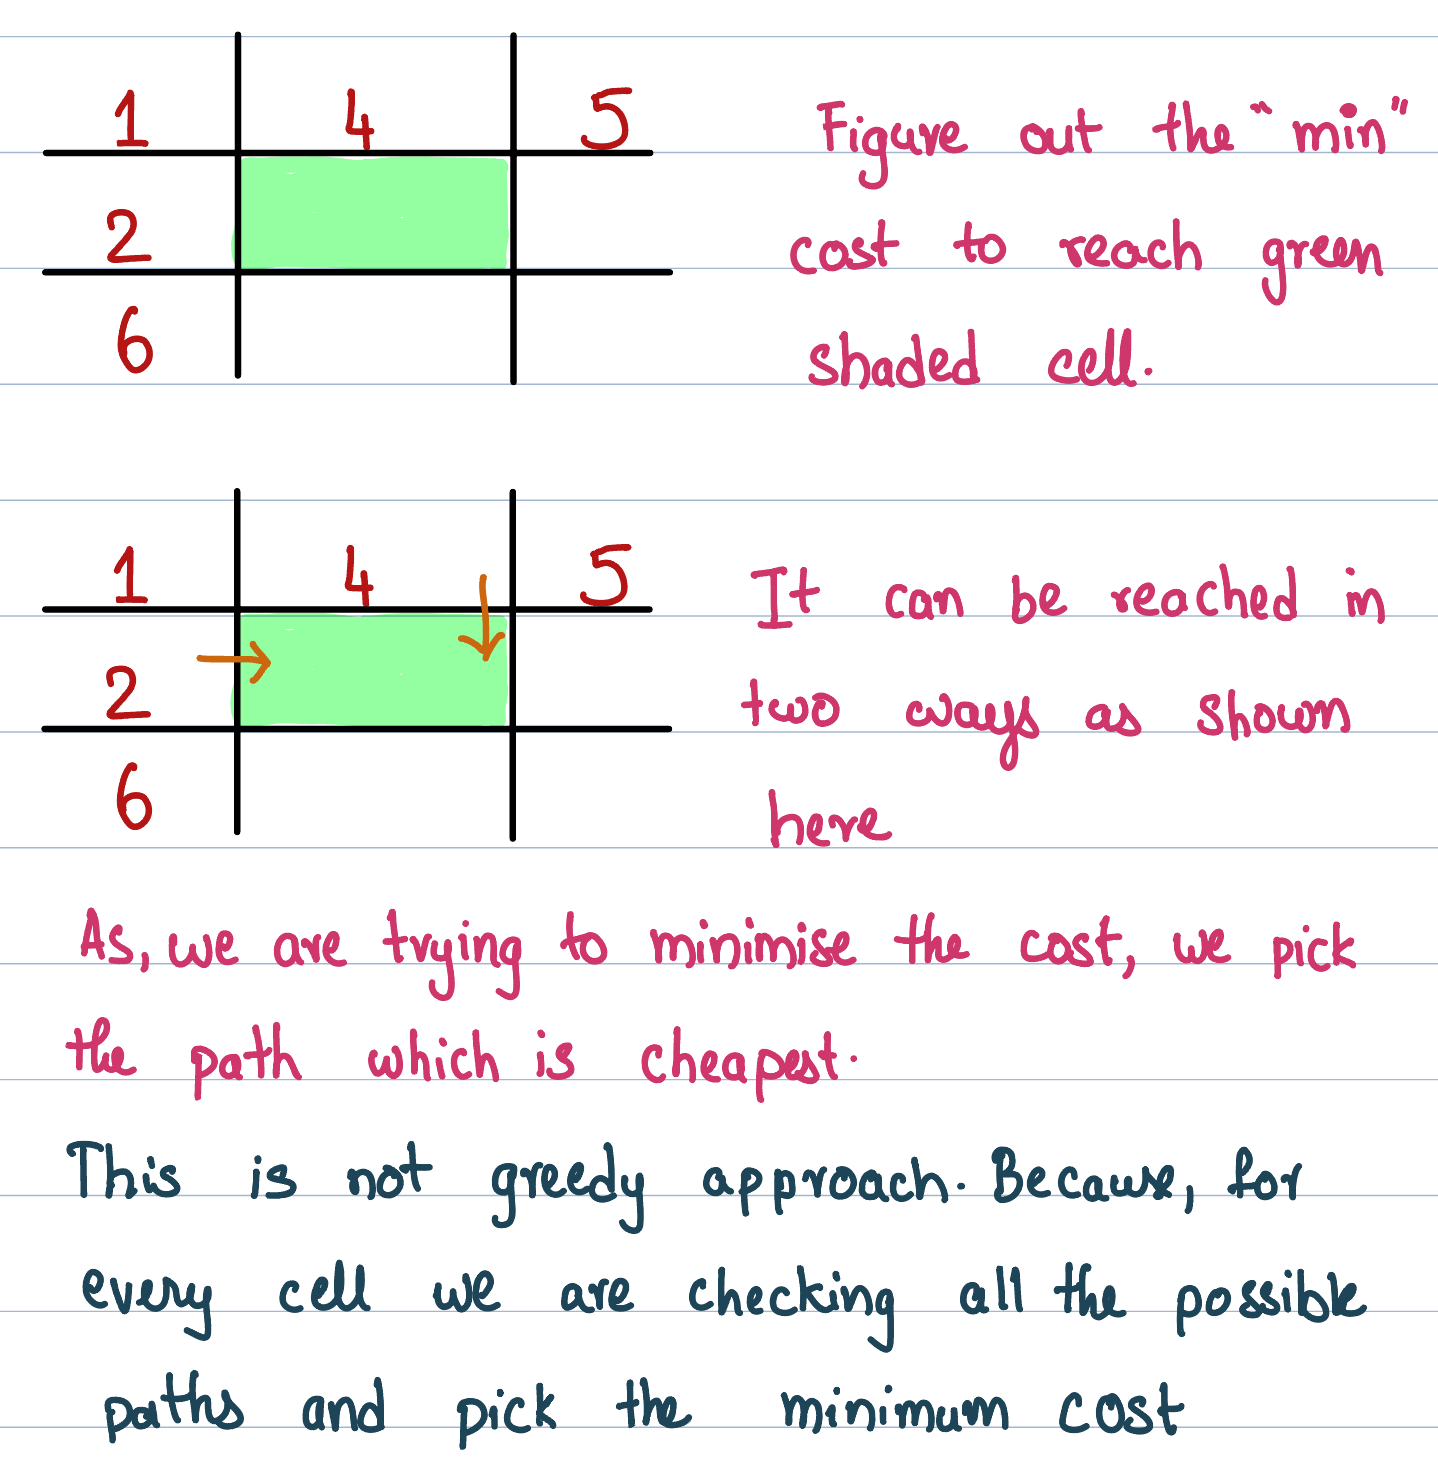 1 4 5
Figure out the "min"
2
cost to reach green
6
shaded cell.
1 4 5
It can be reached in
2
two ways as shown
6
here
As, we are trying to minimise the cost, we pick
the path which is cheapest.
This is not greedy approach. Because, for
every cell we are checking all the possible
paths and pick the minimum cost